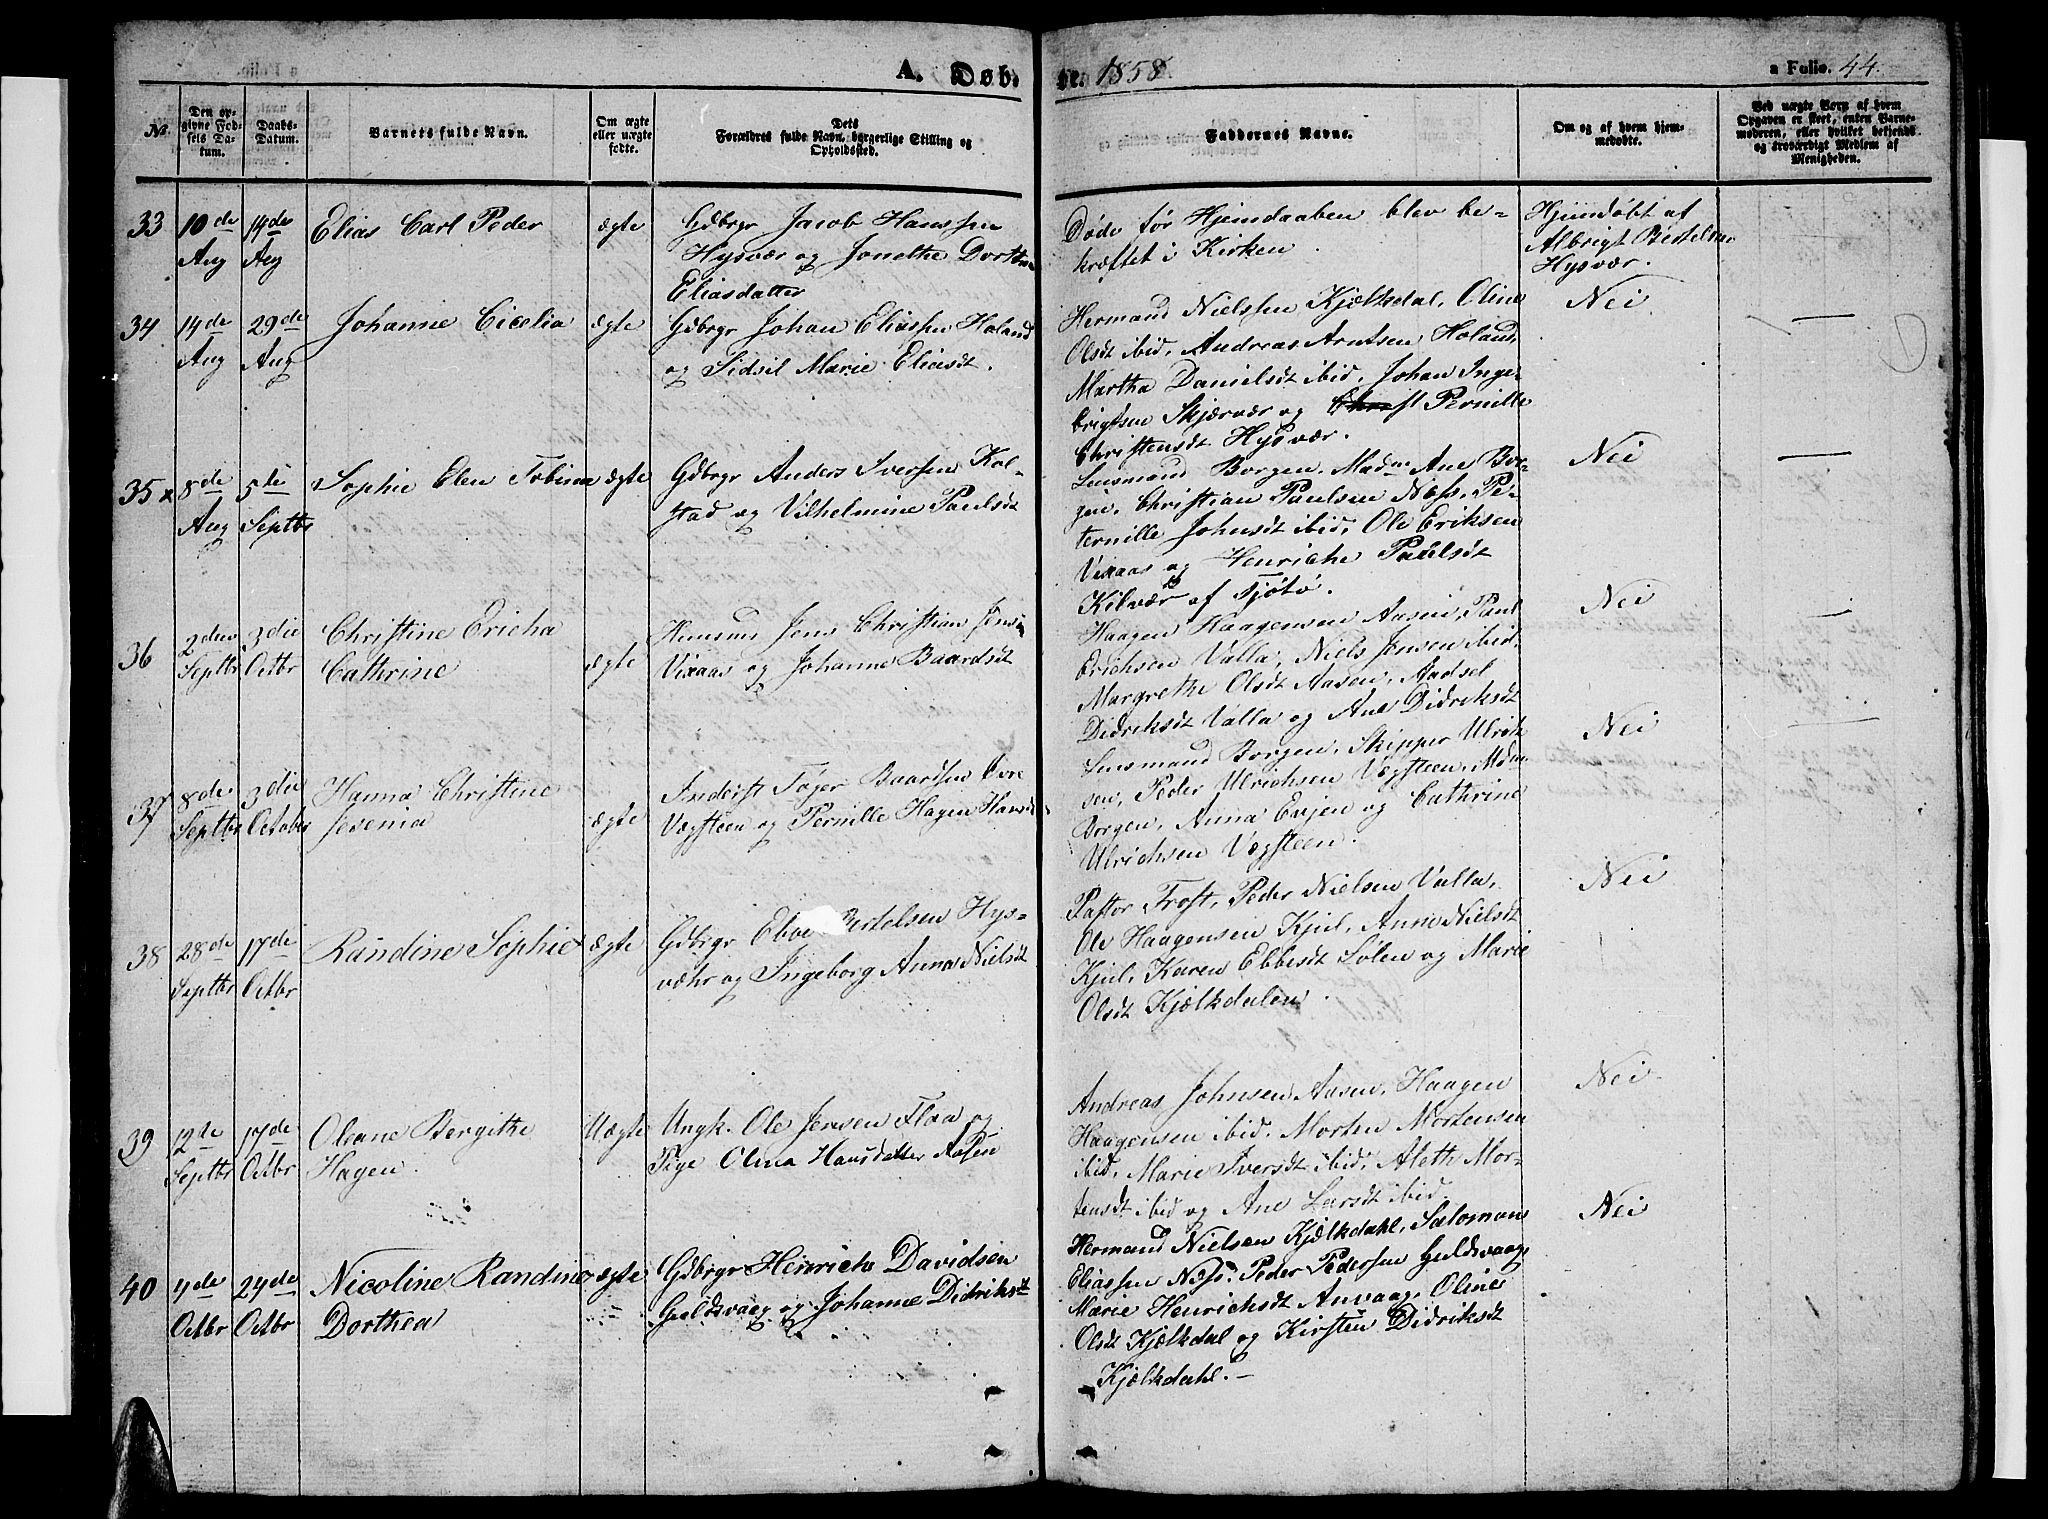 A. Døb-
te. 1858
a Folio. 44.
No.
Den op-
givne Fød-
sels Da-
tum.
Daabs-
Datum.
Barnets fulde Navn.
Om ægte
eller uægte
fødte.
Dets
Forældres fulde Navn, borgerlige Stilling og
Opholdssted.
Faddernes Navne.
Om og af hvem hjem-
medøbt.
Ved uægte Børn af hvem
Opgaven er skeet, enten Barne-
moderen, eller hvilket bekjendt
og troværdigt Medlem af
Menigheden.
33
10de
Aug
14de
Aug
Elias Carl Peder
ægte
Gdbrgr Jacob Hanssen
Hysvær og Jonethe Dorthe
Eliasdatter
Døde før Hjemdaaben blev be-
kræftet i Kirken.
Hjemdøbt af
Albrigt Bertelsen
Hysvær.
34
14de
Aug
29de
Aug
Johanne Cicelia
ægte
Gdbrgr Johan Eliassen Holand
og Sidsil Marie Eliasdt.
Hermand Nielssen Kjælkdal, Oline
Olsdt ibid, Andreas Arntsen Holand,
Martha Danielsdt ibid, Johan Inge-
brigtsen Skjærvær og Pernille
Christensdt Hysvær.
Nei
—
35 x
8de
Aug
5te
Septbr
Sophie Elen Tobina
ægte
Gdbrgr Anders Iversen Kol-
stad og Vilhelmine Paulsdt
Lensmand Borgen, Madm Ane Bor-
gen, Christian Paulsen Næss, Pe-
ternille Johnsdt ibid, Ole Eriksen
Vixaas og Henriche Paulsdt
Kilvær af Tjøtø.
Nei
—
36
2den
Septbr
3die
Octbr
Christine Ericha
Cathrine
ægte
Huusmd Jens Christian Jensen
Vixaas og Johanne Baardsdt
Haagen Haagensen Aasen, Paul
Erichsen Valla, Niels Jensen ibid,
Margrethe Olsdt Aasen, Aadsel
Didriksdt Valla og Ane Didriksdt
Nei
—
37
8de
Septbr
3die
Octobr
Hanna Christine
Jesenia
ægte
Inderst Tøger Baardsen Øvre
Vægsteen og Pernille Hagen Hansdt
Lensmand Borgen, Skipper Ulrik-
sen, Peder Ulrichsen Vægsteen, Mdm
Borgen, Anna Evjen og Cathrine
Ulrichsen Vægsteen.
Nei
—
38
28de
Septbr
17de
Octbr
Randine Sophie
ægte
Gdbrgr Ebbe Bertelsen Hys-
væhr og Ingeborg Anna Nielsdt
Pastor Frost, Peder Nielsen Valla,
Ole Haagensen Kjul, Anne Nielsdt
Kjul, Karen Ebbesdt Sølen og Marie
Olsdt Kjælkdalen.
Nei
39
12te
Septbr
17de
Octbr
Oleane Bergithe
Hagen.
Uægte
Ungk. Ole Jensen Flaa og
Pige Olina Hansdatter Aasen
Andreas Johnsen Aasen, Haagen
Haagensen ibid. Morten Mortensen
ibid, Marie Iversdt ibid, Aleth Mor-
tensdt ibid og Ane Larsdt ibid.
Nei.
40
4de
Octbr
24de
Octbr
Nicoline Randine
Dorthea
ægte
Gdbrgr Henrich Davidsen
Guldsvaag og Johanne Didriksdt
Hermand Nielsen Kjælkdahl, Salomon
Eliassen Næss. Peder Pedersen Guldsvaag,
Marie Henrichsdt Anvaag, Oline
Olsdt Kjælkdal og Kirsten Didriksdt
Kjælkdahl.—
Nei